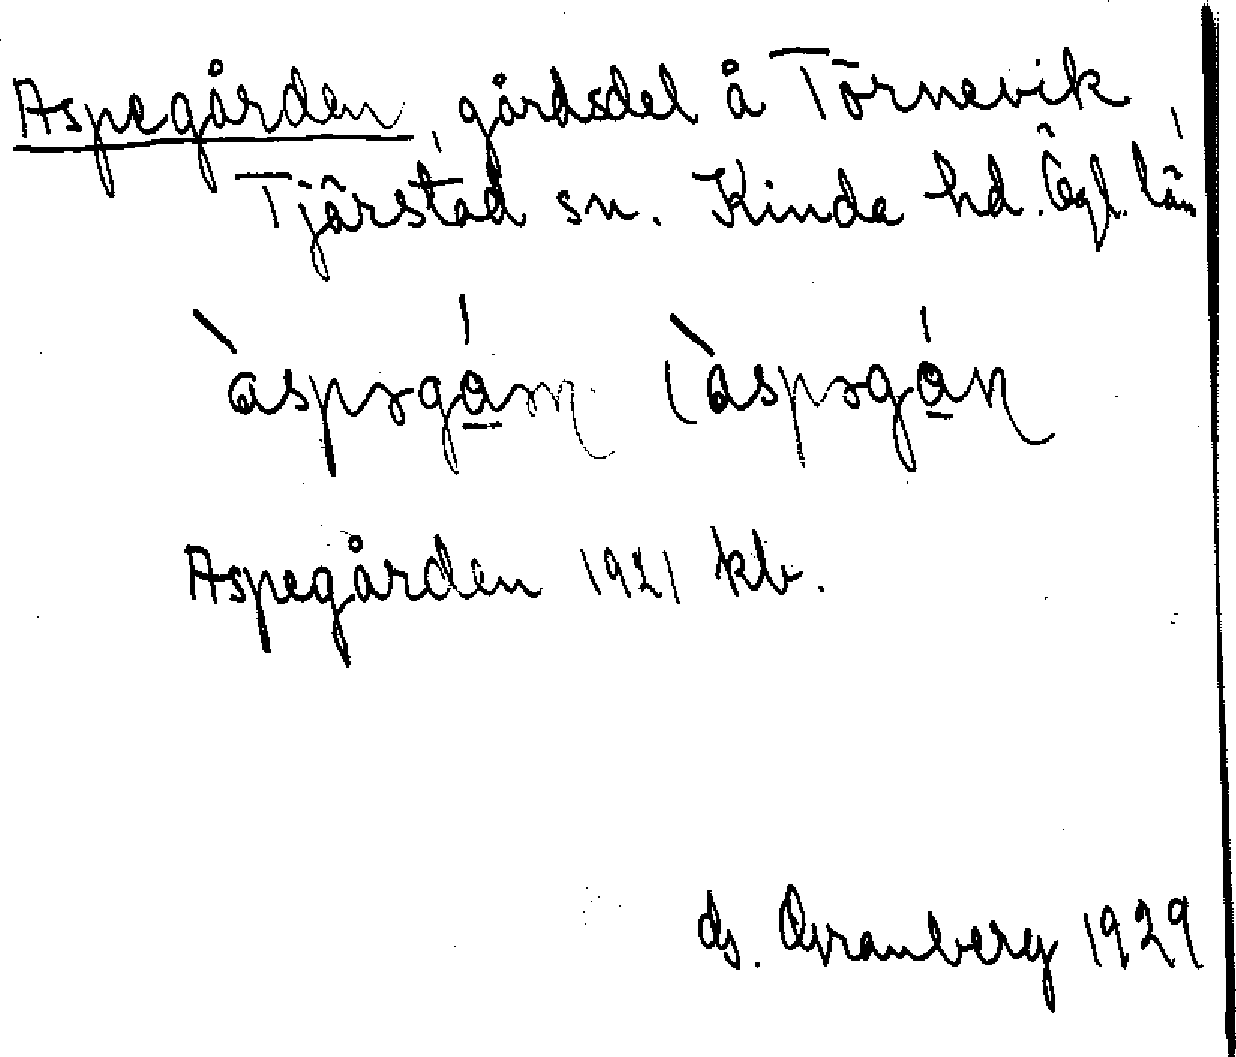 Aspegården, gårdsdel å Törnevik,
Tjärstad sn. Kinda hd. Ögl. län
Aspegården 1921 kb.
Qvanberg 1929